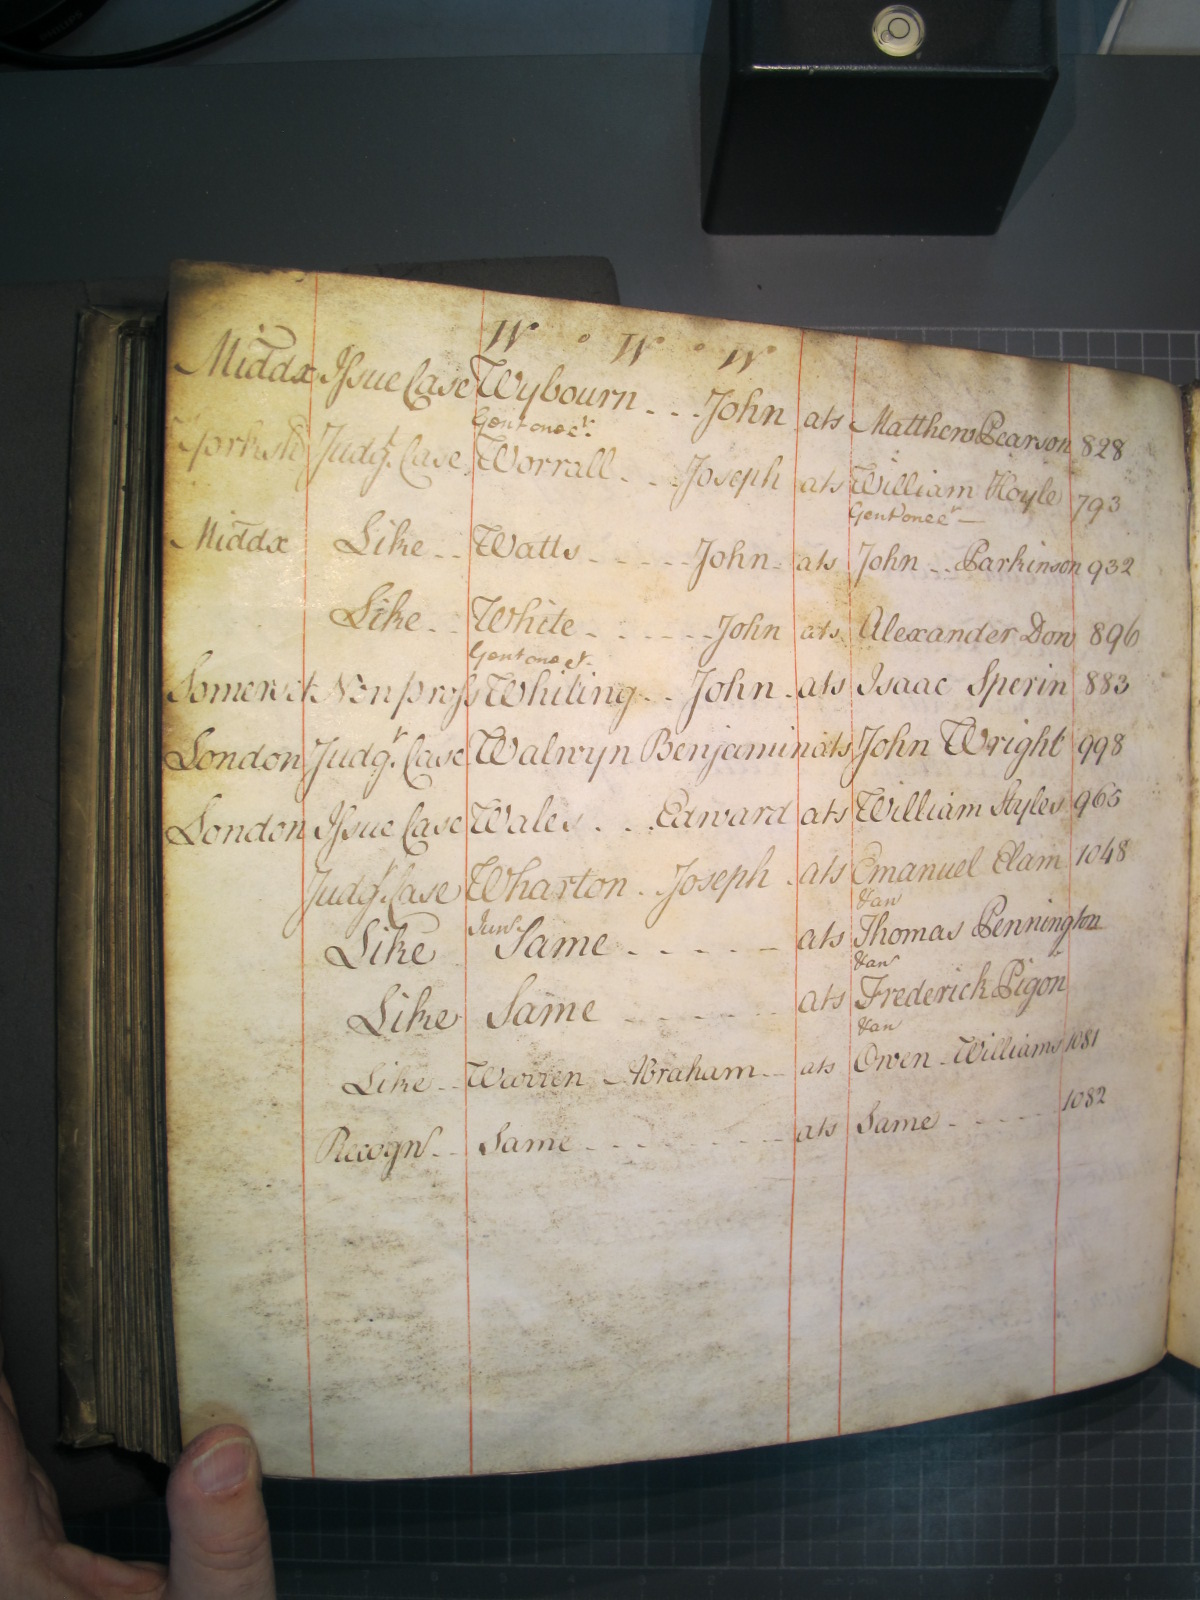 W W W
Middx Issue Case Wybourn John ats Matthew Pearson 828
Gent one &c.
Yorksh Judgt. Case Worrall Joseph ats William Hoyle 793
Gent one &c
Middx Like Watts John ats John Parkinson 932
Like White John ats Alexander Don 896
Gent one &c.
Somerset Non pross Whiting John ats Isaac Sperin 883
London Judgt. Case Walwyn Benjamin ats John Wright 998
London Issue Case Wales Edward ats William Styles 965
Judgt. Case Wharton Joseph ats Emanuel Elam 1048
Junr. &an
Like Same ats Thomas Pennington
&an
Like Same ats Frederick Pigon
&an
Like Warren Abraham ats Owen Williams 1081
Recogn Same ats Same 1082